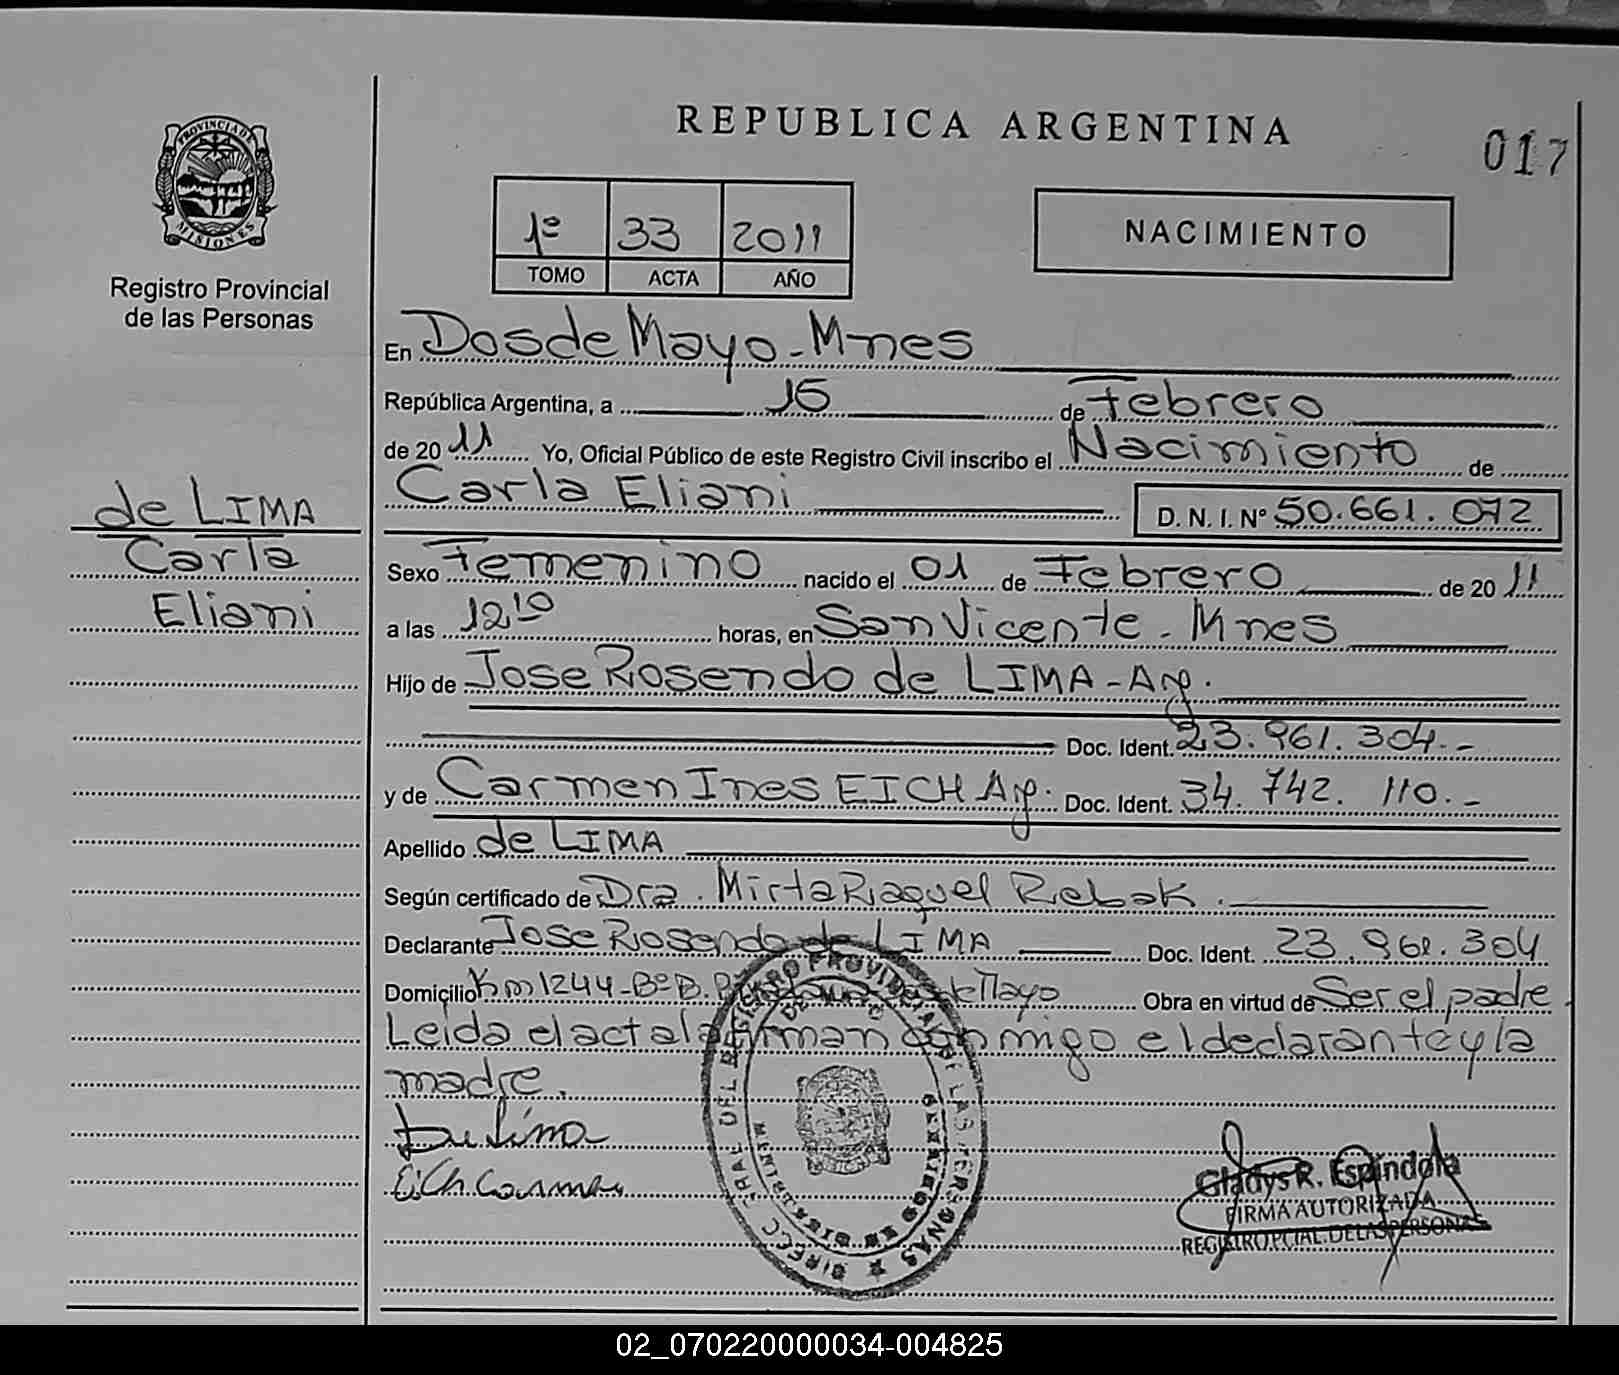 REPUBLICA ARGENTINA
017
PROVINCIA DE
MISIONES
Registro Provincial
de las Personas
1º 33 2011
TOMO ACTA AÑO
NACIMIENTO
En Dos de Mayo - Mnes
República Argentina, a 15 de Febrero
de 2011 Yo, Oficial Público de este Registro Civil inscribo el Nacimiento de
Carla Eliani D. N. I. Nº 50.661.072
de LIMA
Carla
Eliani
Sexo Femenino nacido el 01 de Febrero de 2011
a las 12:10 horas, en San Vicente - Mnes
Hijo de Jose Rosendo de LIMA - Arg.
Doc. Ident. 23.961.304.-
y de Carmen Ines EICH Arg. Doc. Ident. 34.742.110.-
Apellido de LIMA
Según certificado de Dra. Mirta Raquel Rebak.
Declarante Jose Rosendo de LIMA Doc. Ident. 23.961.304
Domicilio Km 1244 - Bº B. de Mayo Obra en virtud de Ser el padre.
Leida el acta la firman conmigo el declarante y la
madre.
De Lima
Eich Carmen
DIRECC. GRAL. DEL REGISTRO PROVINCIAL DE LAS PERSONAS
Gladys R. Espíndola
FIRMA AUTORIZADA
REGISTRO PCIAL. DE LAS PERSONAS
02_070220000034-004825